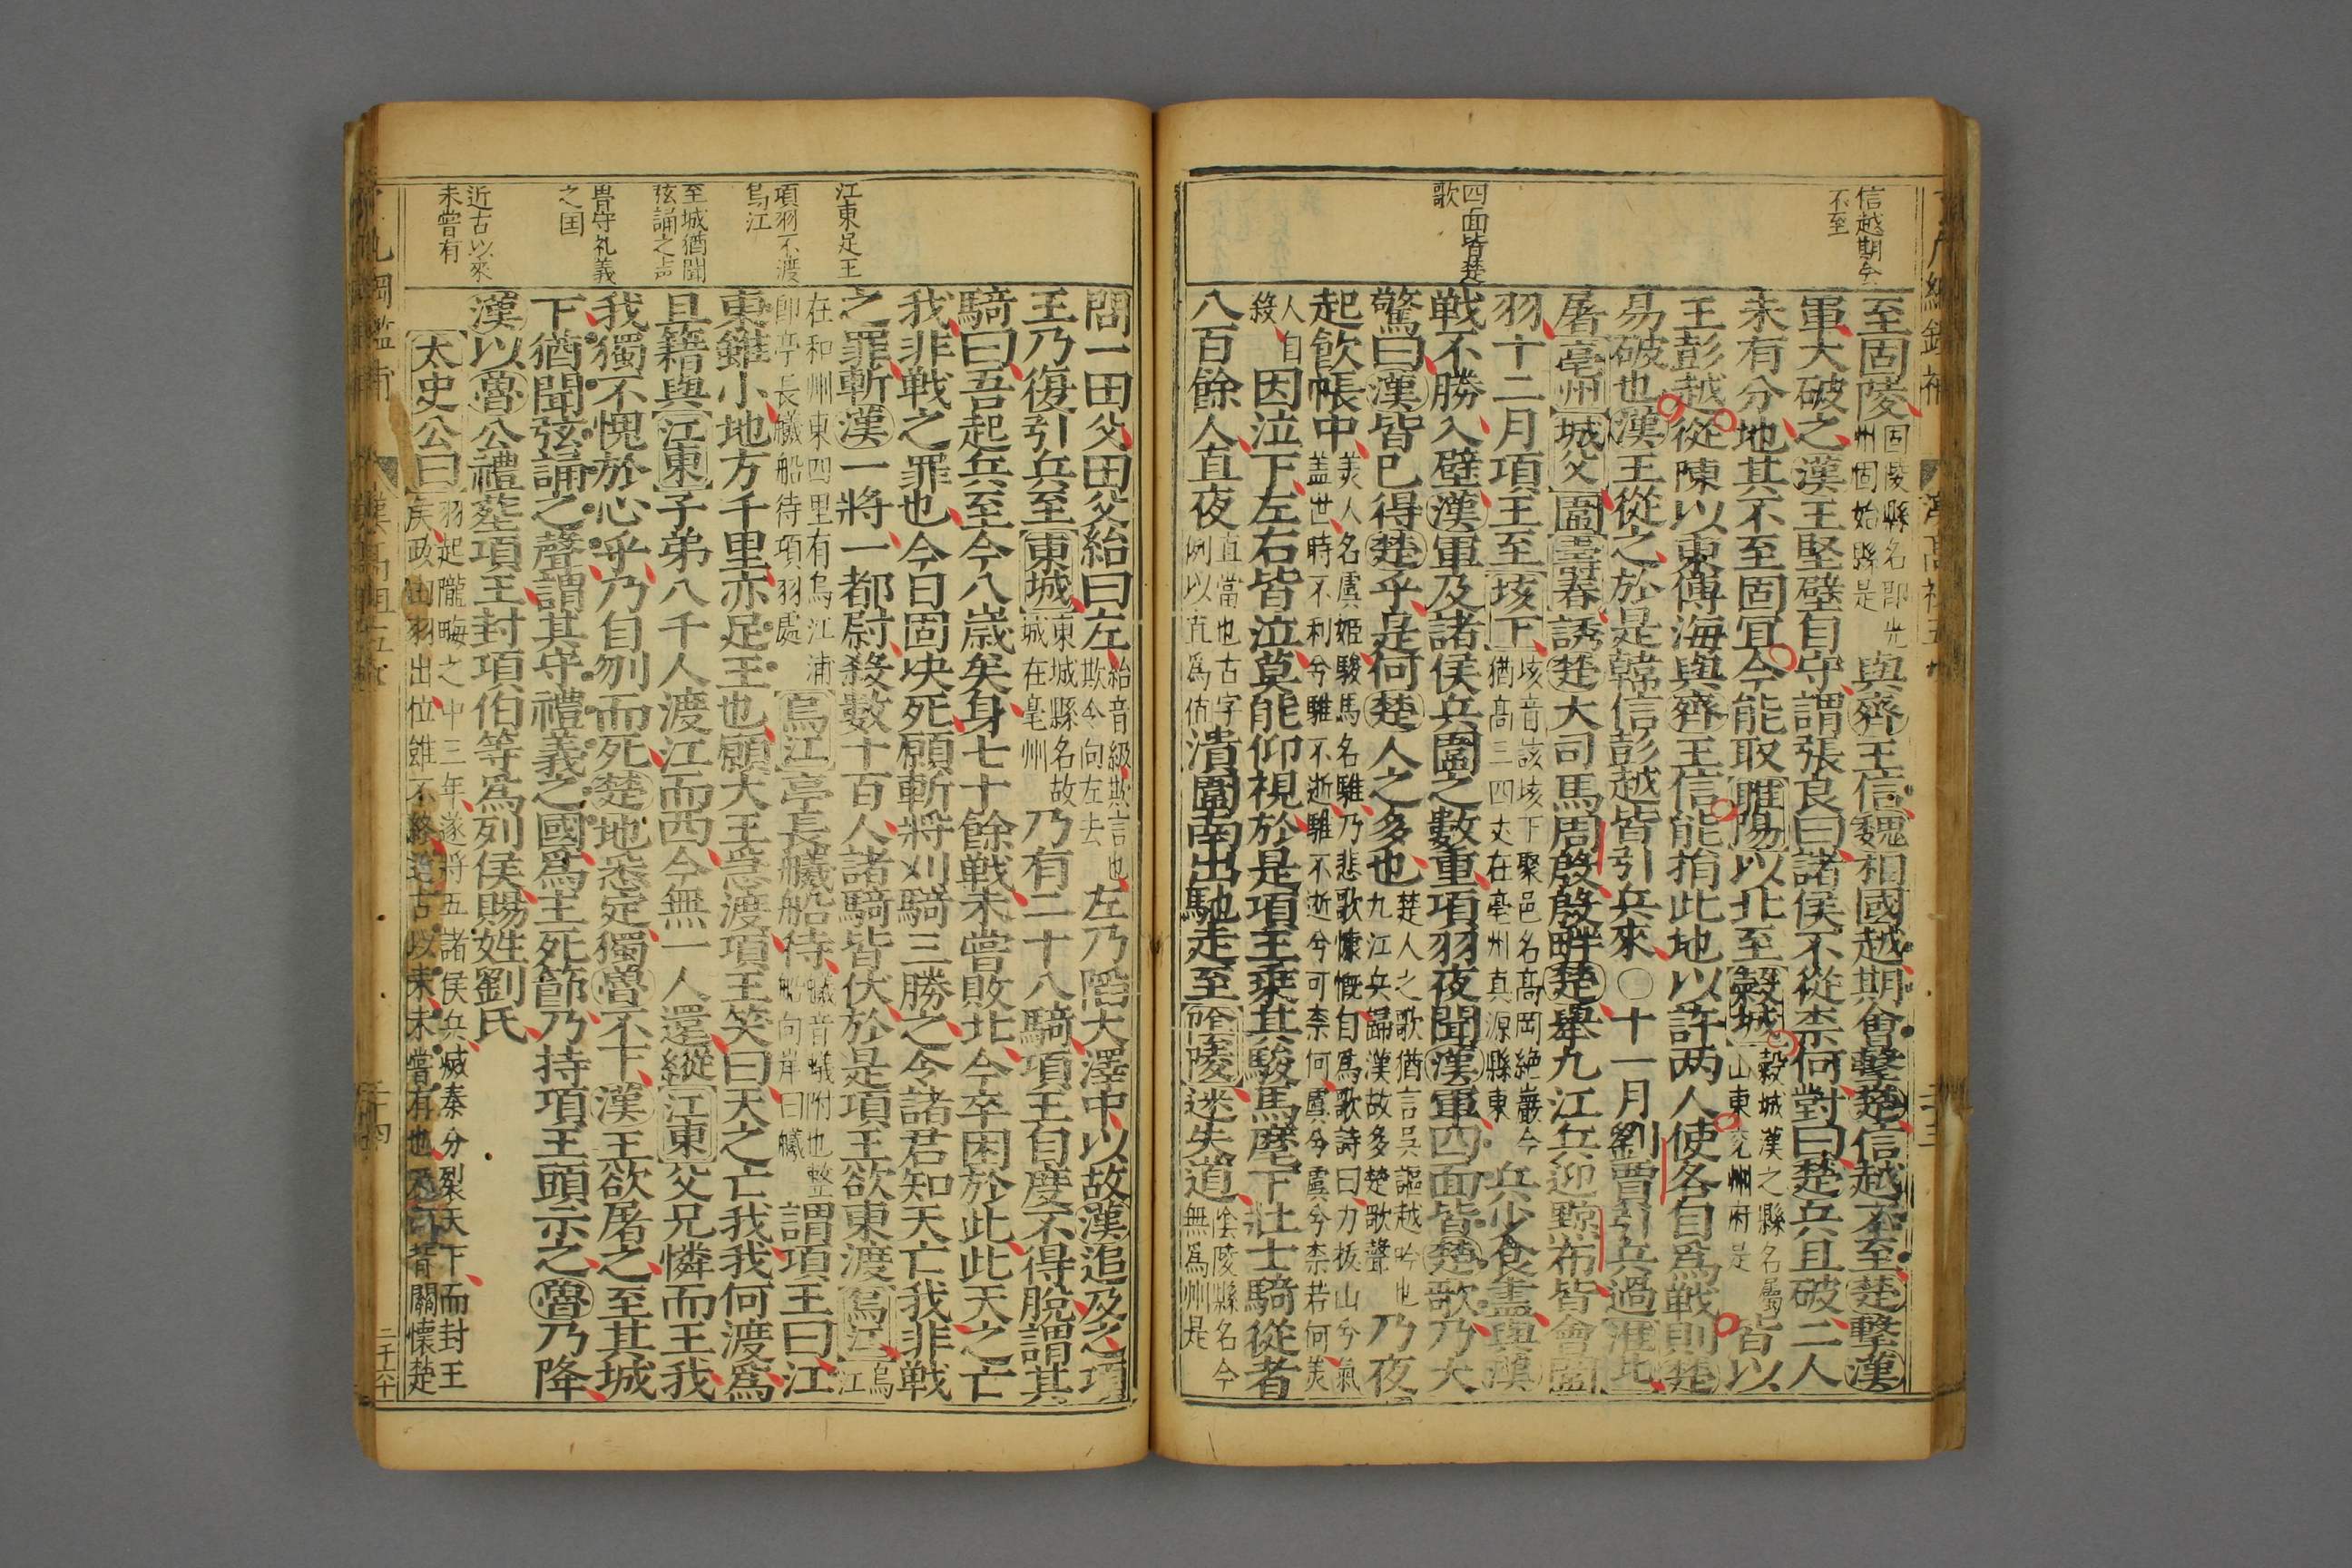 信越期会
不至
四面皆楚
歌
至固陵固陵縣名即光州固始縣是與齊王信魏相國越期會擊楚信越不至楚擊漢
軍大破之漢王堅壁自守謂張良曰諸侯不從柰何對曰楚兵且破二人
未有分地其不至固冝今能取睢陽以北至穀城穀城漢之縣名屬山東兖州府是皆以
王彭越從陳以東傅海與齊王信能捐此地以許两人使各自爲戰則楚
易破也漢王從之於是韓信彭越皆引兵來○十一月劉賈引兵過淮北
屠亳州城父圍壽春誘楚大司馬周殷殷畔楚舉九江兵迎黥布皆會圍
羽十二月項王至垓下垓音該垓下聚邑名高岡絶巖今猶高三四丈在亳州真源縣東兵少食盡與漢
戰不勝入壁漢軍及諸侯兵圍之數重項羽夜聞漢軍四面皆楚歌乃大
驚曰漢皆已得楚乎是何楚人之多也楚人之歌猶言吳謳越吟也九江兵歸漢故多楚歌聲乃夜
起飲帳中美人名虞姬駿馬名騅乃悲歌慷慨自爲歌詩曰力拔山兮氣蓋世時不利兮騅不逝騅不逝兮可柰何虞兮虞兮柰若何美
人自殺因泣下左右皆泣莫能仰視於是項王乘其駿馬麾下壯士騎從者
八百餘人直夜直當也古字例以直爲值潰圍南出馳走至陰陵迷失道陰陵縣名今無爲州是
江東足王
項羽不渡
烏江
至城猶聞
弦誦之声
魯守礼義
之国
近古以來
未嘗有
問一田父田父紿曰左紿音級欺言也欺令向左去左乃陷大澤中以故漢追及之項
王乃復引兵至東城東城縣名故城在亳州乃有二十八騎項王自度不得脫謂其
騎曰吾起兵至今八歲矣身七十餘戰未嘗敗北今卒困於此此天之亡
我非戰之罪也今日固决死願斬將刈騎三勝之令諸君知天亡我非戰
之罪斬漢一將一都尉殺數十百人諸騎皆伏於是項王欲東渡烏江烏江
在和州東四里有烏江浦即亭長艤船待項羽處烏江亭長艤船待艤音蟻附也整船向岸曰艤謂項王曰江
東雖小地方千里亦足王也願大王急渡項王笑曰天之亡我我何渡爲
且籍與江東子弟八千人渡江而西今無一人還縱江東父兄憐而王我
我獨不愧於心乎乃自刎而死楚地悉定獨魯不下漢王欲屠之至其城
下猶聞弦誦之聲謂其守禮義之國爲主死節乃持項王頭示之魯乃降
漢以魯公禮塟項王封項伯等爲列侯賜姓劉氏
太史公曰羽起隴畮之中三年遂將五諸侯兵滅秦分裂天下而封王侯政由羽出位雖不終近古以來未嘗有也及羽背關懷楚